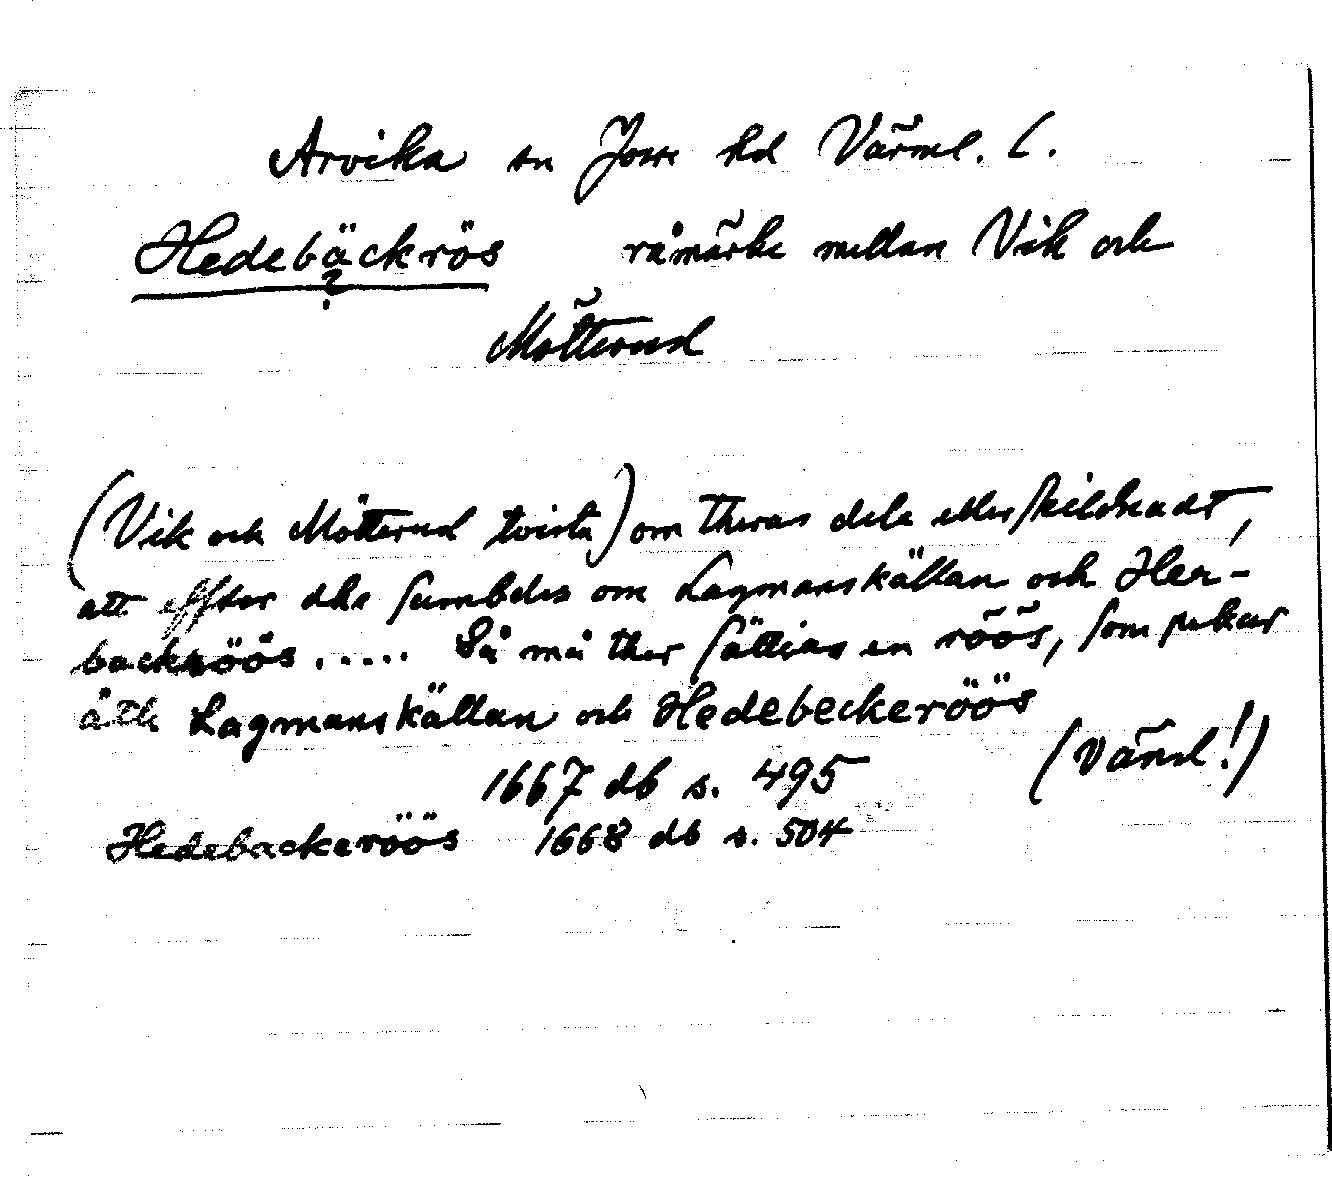 Arvika sn Jösse hd Värml. l.
Hedebäckrös råmärke mellan Vik och
?
Mötterud
(Vik och Mötterud tvista) om theras dele eller skildnadt,
att effter dhe sambdes om Lagmanskällan och Her-
backröös ..... Så må ther sättias en röös, som pekar
åth Lagmanskällan och Hedebeckeröös
1667 db s. 495 (Värml!)
Hedebackeröös 1668 db s. 504